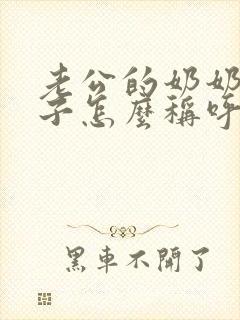 老公的奶奶
子怎麼稱呼
黑車不開了